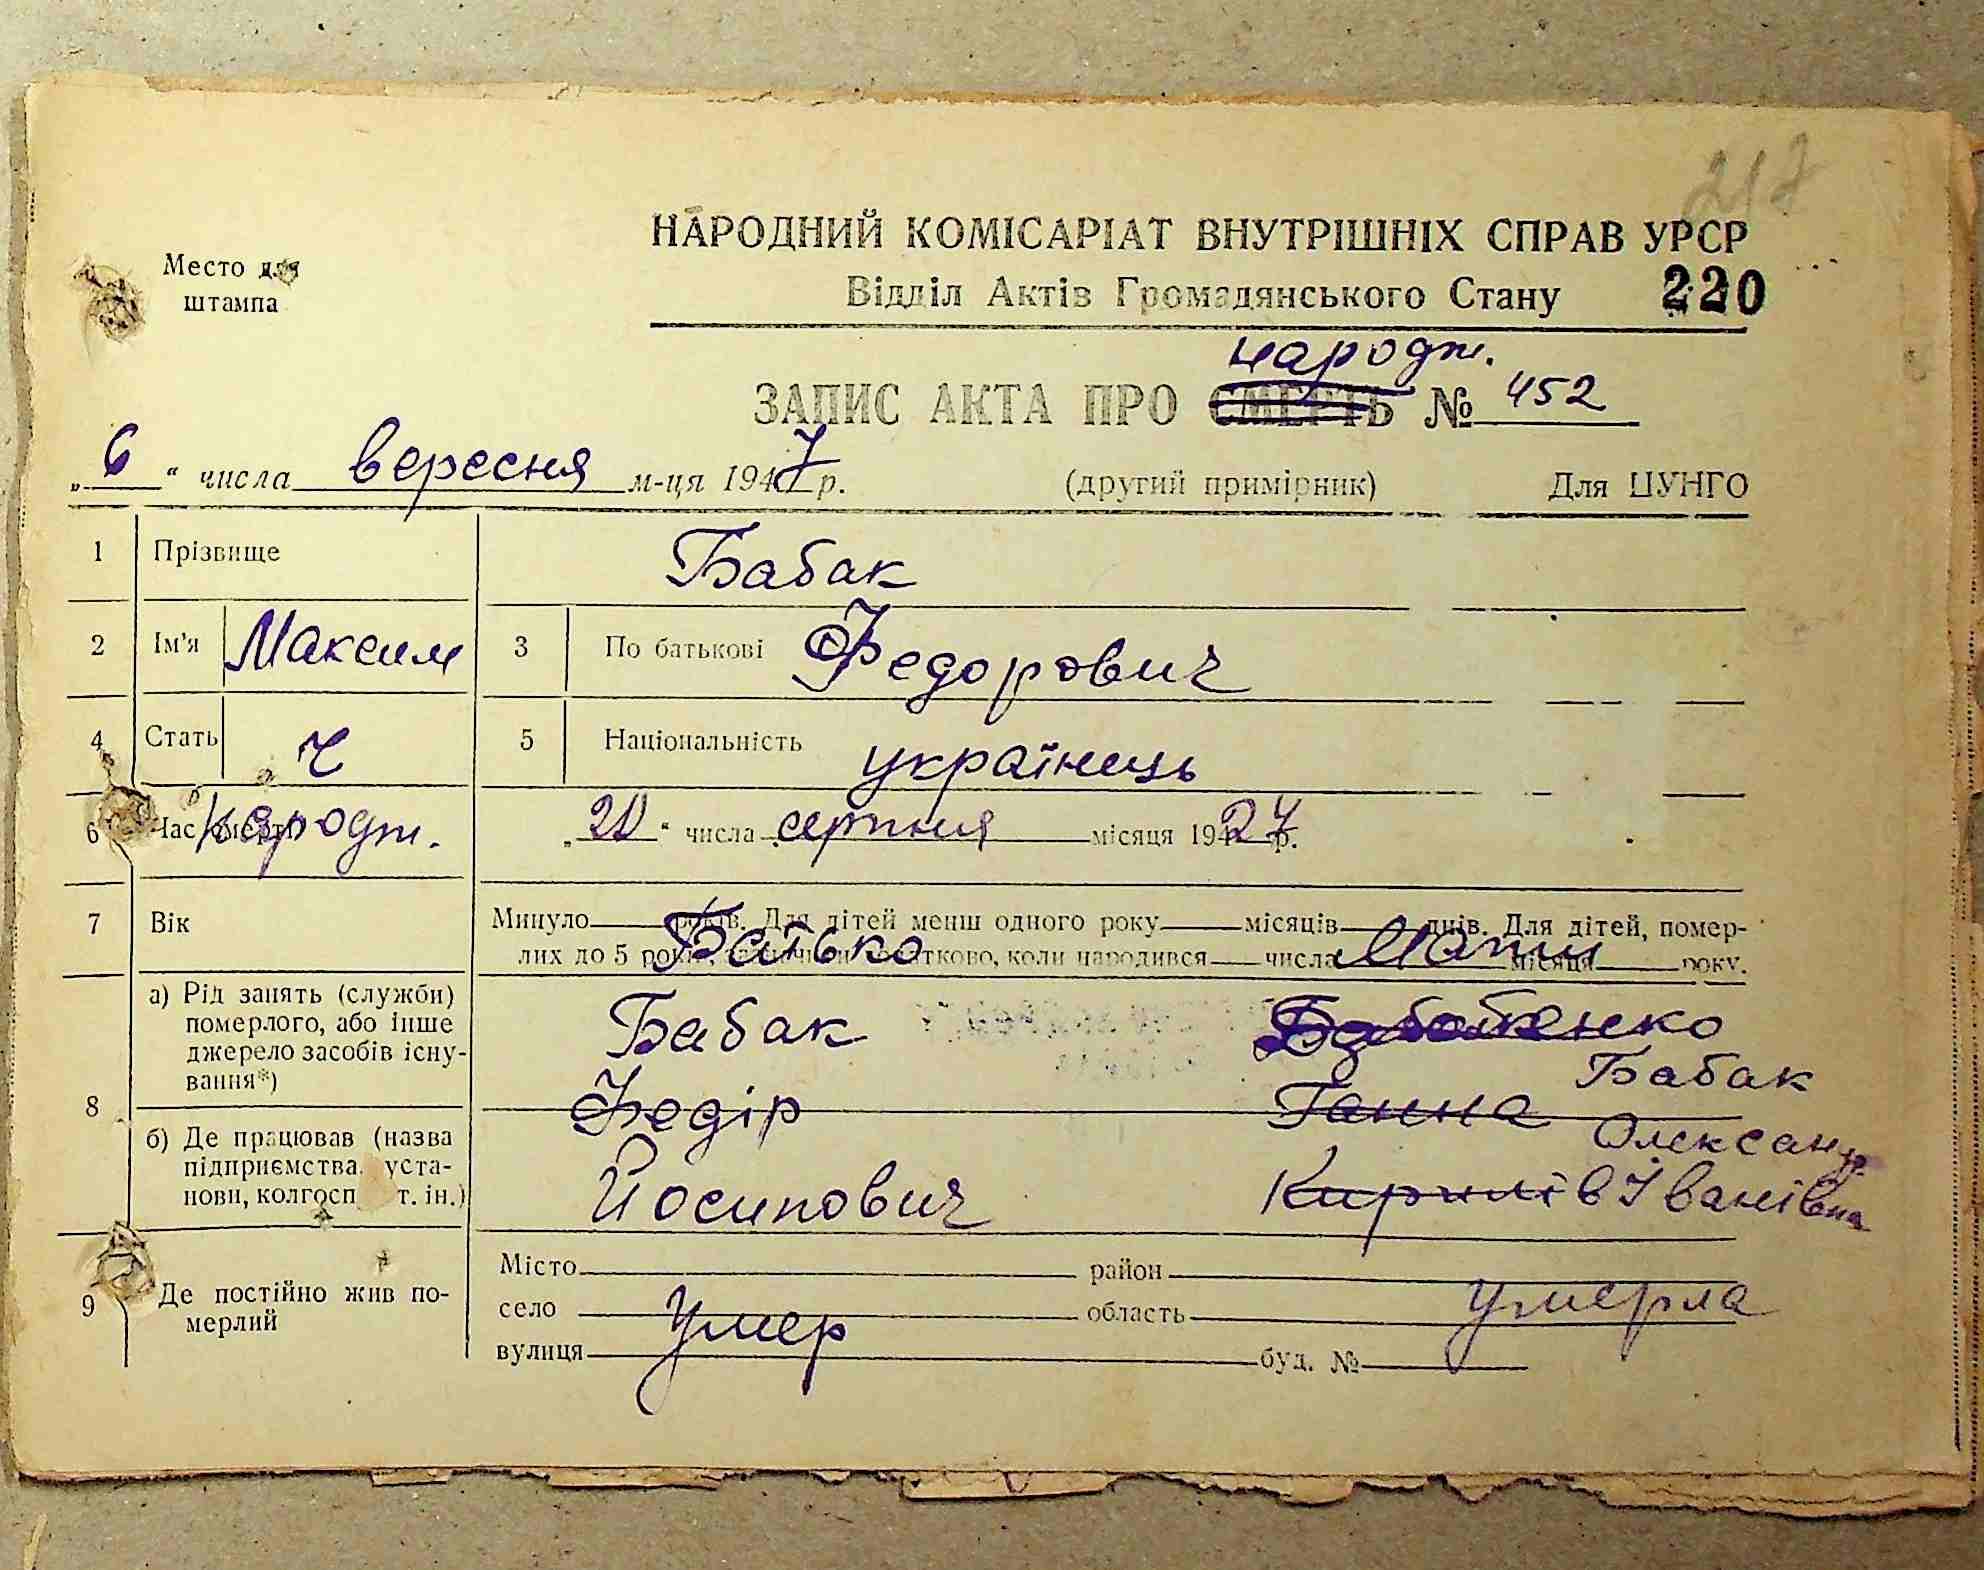 217
НАРОДНИЙ КОМІСАРІАТ ВНУТРІШНІХ СПРАВ УРСР
Место для
штампа
Відділ Актів Громадянського Стану 220
народж.
ЗАПИС АКТА ПРО СМЕРТЬ № 452
„6“ числа вересня м-ця 1947 р. (другий примірник) Для ЦУНГО
1 Прізвище Бабак
2 Ім'я Максим 3 По батькові Федорович
4 Стать Ч 5 Національність українець
6 Час смерти народж. „20“ числа серпня місяця 1927 р.
7 Вік Минуло років. Для дітей менш одного року місяців днів. Для дітей, помер-
лих до 5 років, зазначити додатково, коли народився числа місяця року.
Батько Мати
8 а) Рід занять (служби)
померлого, або інше
джерело засобів існу-
вання*)
Бабак Бабак
б) Де працював (назва
підприємства, уста-
нови, колгосп т. ін.)
Федір Ганна Олександр
Йосипович Кирилів Іванівна
9 Де постійно жив по-
мерлий
Місто район
село область
вулиця буд. №
умер умерла